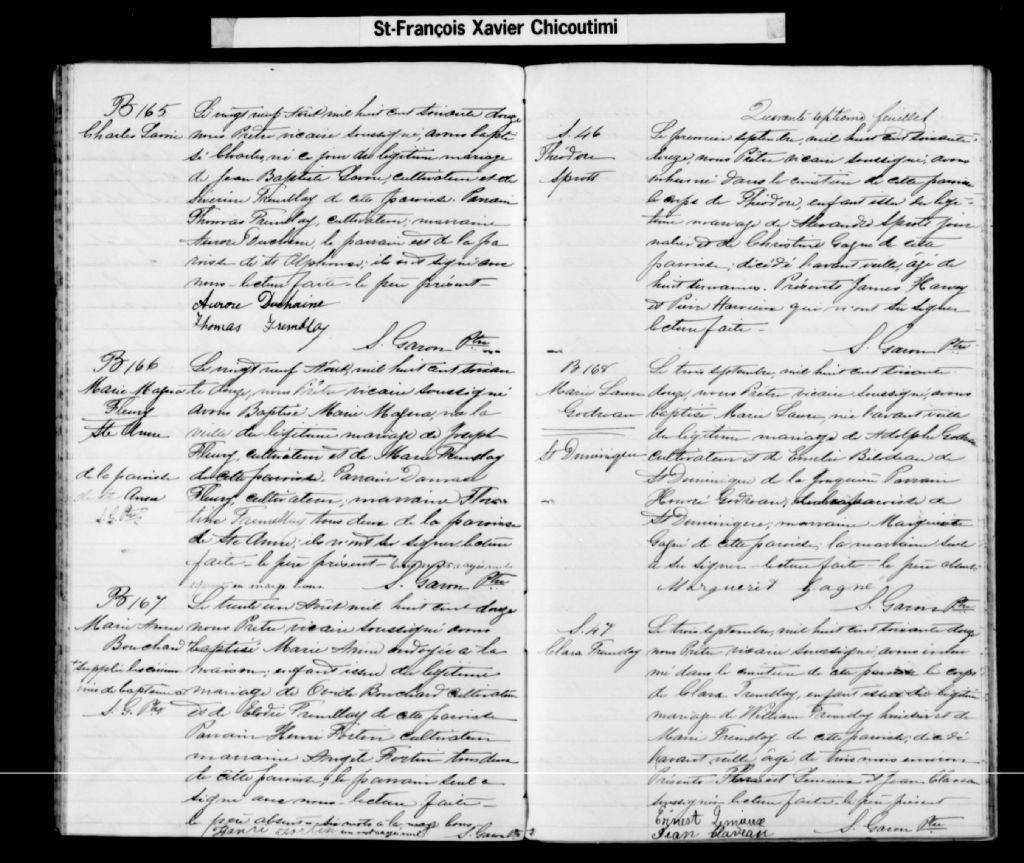 St-François Xavier Chicoutimi
B 165
Charles Savoie
Le vingt neuf Août mil huit cent soixante douze
nous Prêtre vicaire soussigné, avons bapti-
sé Charles, né ce jour du légitime mariage
de Jean Baptiste Savoie, cultivateur et de
Séverine Tremblay de cette paroisse. Parrain
Thomas Tremblay, cultivateur, marraine
Aurore Duchaine, le parrain est de la pa
roisse de St Alphonse; ils ont signé avec
nous. lecture faite. le père présent-
Aurore Duchaine
Thomas Tremblay
S. Garon Ptre
B 166
Marie
Fleury
Ste Anne
de la paroisse
de Ste Anne
S.G. Ptre
Le vingt neuf Août, mil huit cent soixan
te douze, nous Prêtre vicaire soussigné
avons Baptisé Marie née la
veille du légitime mariage de Joseph
Fleury, cultivateur et de Marie Tremblay
de cette paroisse. Parrain Damase
Fleury, cultivateur; marraine
Tremblay tous deux de la paroisse
de Ste Anne; ils n'ont su signer lecture
faite. le père présent-
en marge bons.
S. Garon Ptre
B 167
Marie Anne
Bouchard
Supplée les cérémo
nies de baptême
S. G. Ptre
Le trente un Août mil huit cent douze
nous Prêtre vicaire soussigné avons
baptisé Marie Anne ondoyée à la
maison, enfant issue du légitime
mariage de Ovide Bouchard cultivateur
et de Elodie Tremblay de cette paroisse
Parrain Henri Fortin cultivateur
marraine Angèle Fortin tous deux
de cette paroisse, le parrain seul a
signé avec nous. lecture faite-
le père absent-
Henri Fortin
S. Garon Ptre
Quarante septième feuillet
S. 46
Théodore
Sprott
Le premier septembre, mil huit cent soixante
douze, nous Prêtre vicaire soussigné, avons
inhumé dans le cimetière de cette paroisse
le corps de Théodore, enfant issu du légi-
time mariage de Alexandre Sprott jour
nalier et de Christine Gagné de cette
paroisse, décédé l'avant veille, âgé de
huit semaines. Présents James Harvey
et Pierre qui n'ont su signer
lecture faite-
S. Garon Ptre
B 168
Marie Laure
Godreau
St Dominique
Le trois septembre mil huit cent soixante
douze, nous Prêtre vicaire soussigné, avons
baptisé Marie Laure, née l'avant veille
du légitime mariage de Adolphe Godreau
cultivateur et de Emélie Bilodeau de
St Dominique de la Jonquière Parrain
Henri Godreau, de la paroisse de
St Dominique; marraine Marguerite
Gagné de cette paroisse, la marraine seule
a su signer- lecture faite- le père absent-
Marguerit Gagné
S. Garon Ptre
S. 47
Clara Tremblay
Le trois septembre, mil huit cent soixante douze
nous Prêtre vicaire soussigné, avons inhu
mé dans le cimetière de cette paroisse le corps
de Clara Tremblay, enfant issue du légitime
mariage de William Tremblay huissier et de
Marie Tremblay de cette paroisse, décédée
l'avant veille âgée de trois mois environ
Présents Ernest Lemieux et Jean Claveau
soussignés- lecture faite- le père présent
Ernest Lemieux
Jean Claveau
S. Garon Ptre